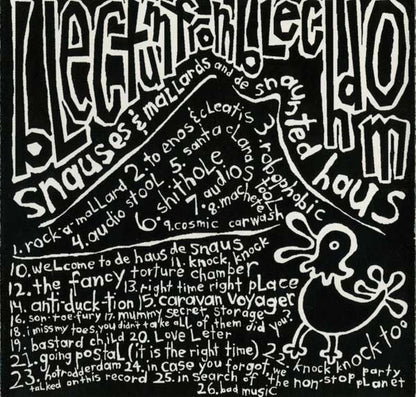 blectum from blechdom
snauses & mallards and de snaunted haus
1. rock'a'mallard 2. to enos & cleatis 3. robophobic
4. audio stool 5. santa clana
6. shithole 7. audios 8. machete
9. cosmic carwash
10. welcome to de haus de snaus 11. knock, knock
12. the fancy torture chamber 13. right time right place
14. anti-duck-tion 15. caravan voyager
16. son-toe-fury 17. mummy secret storage
18. i miss my toes, you didn't take all of them did you?
19. bastard child 20. Love Leter
21. going postal (it is the right time) 22. knock knock too
23. hotrodderdam 24. in case you forgot, we talked on this record 25. in search of 'the non-stop party planet
26. bad music